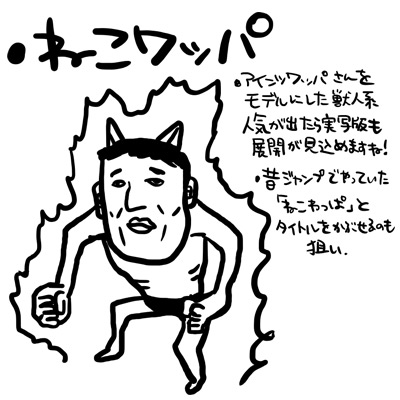 •ねこワッパ
•アインツワッパさんを
モデルにした獣人系
人気が出たら実写版も
展開が見込めますね!
•昔ジャンプでやっていた
「ねこわっぱ」と
タイトルをかぶせるのも
狙い.